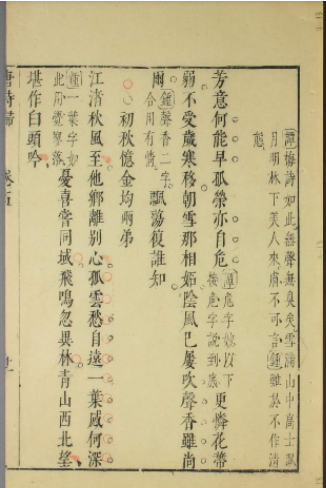 譚梅詩如此無聲無臭矣雪滿山中高士臥
月明林下美人來膚不可言鍾雖然不作清
態
芳意何能早孤榮亦自危譚危字妙以下從危字說到底更憐花蒂
弱不受歲寒移朝雪那相妬陰風已屢吹馨香雖尚
爾鍾馨香二字合用有情飄蕩復誰知
初秋憶金均兩弟
江渚秋風至他鄉離別心孤雲愁自遠一葉感何深
鍾一葉字如此用覺寥落憂喜嘗同域飛鳴忽異林青山西北望
堪作白頭吟
唐詩歸 卷五